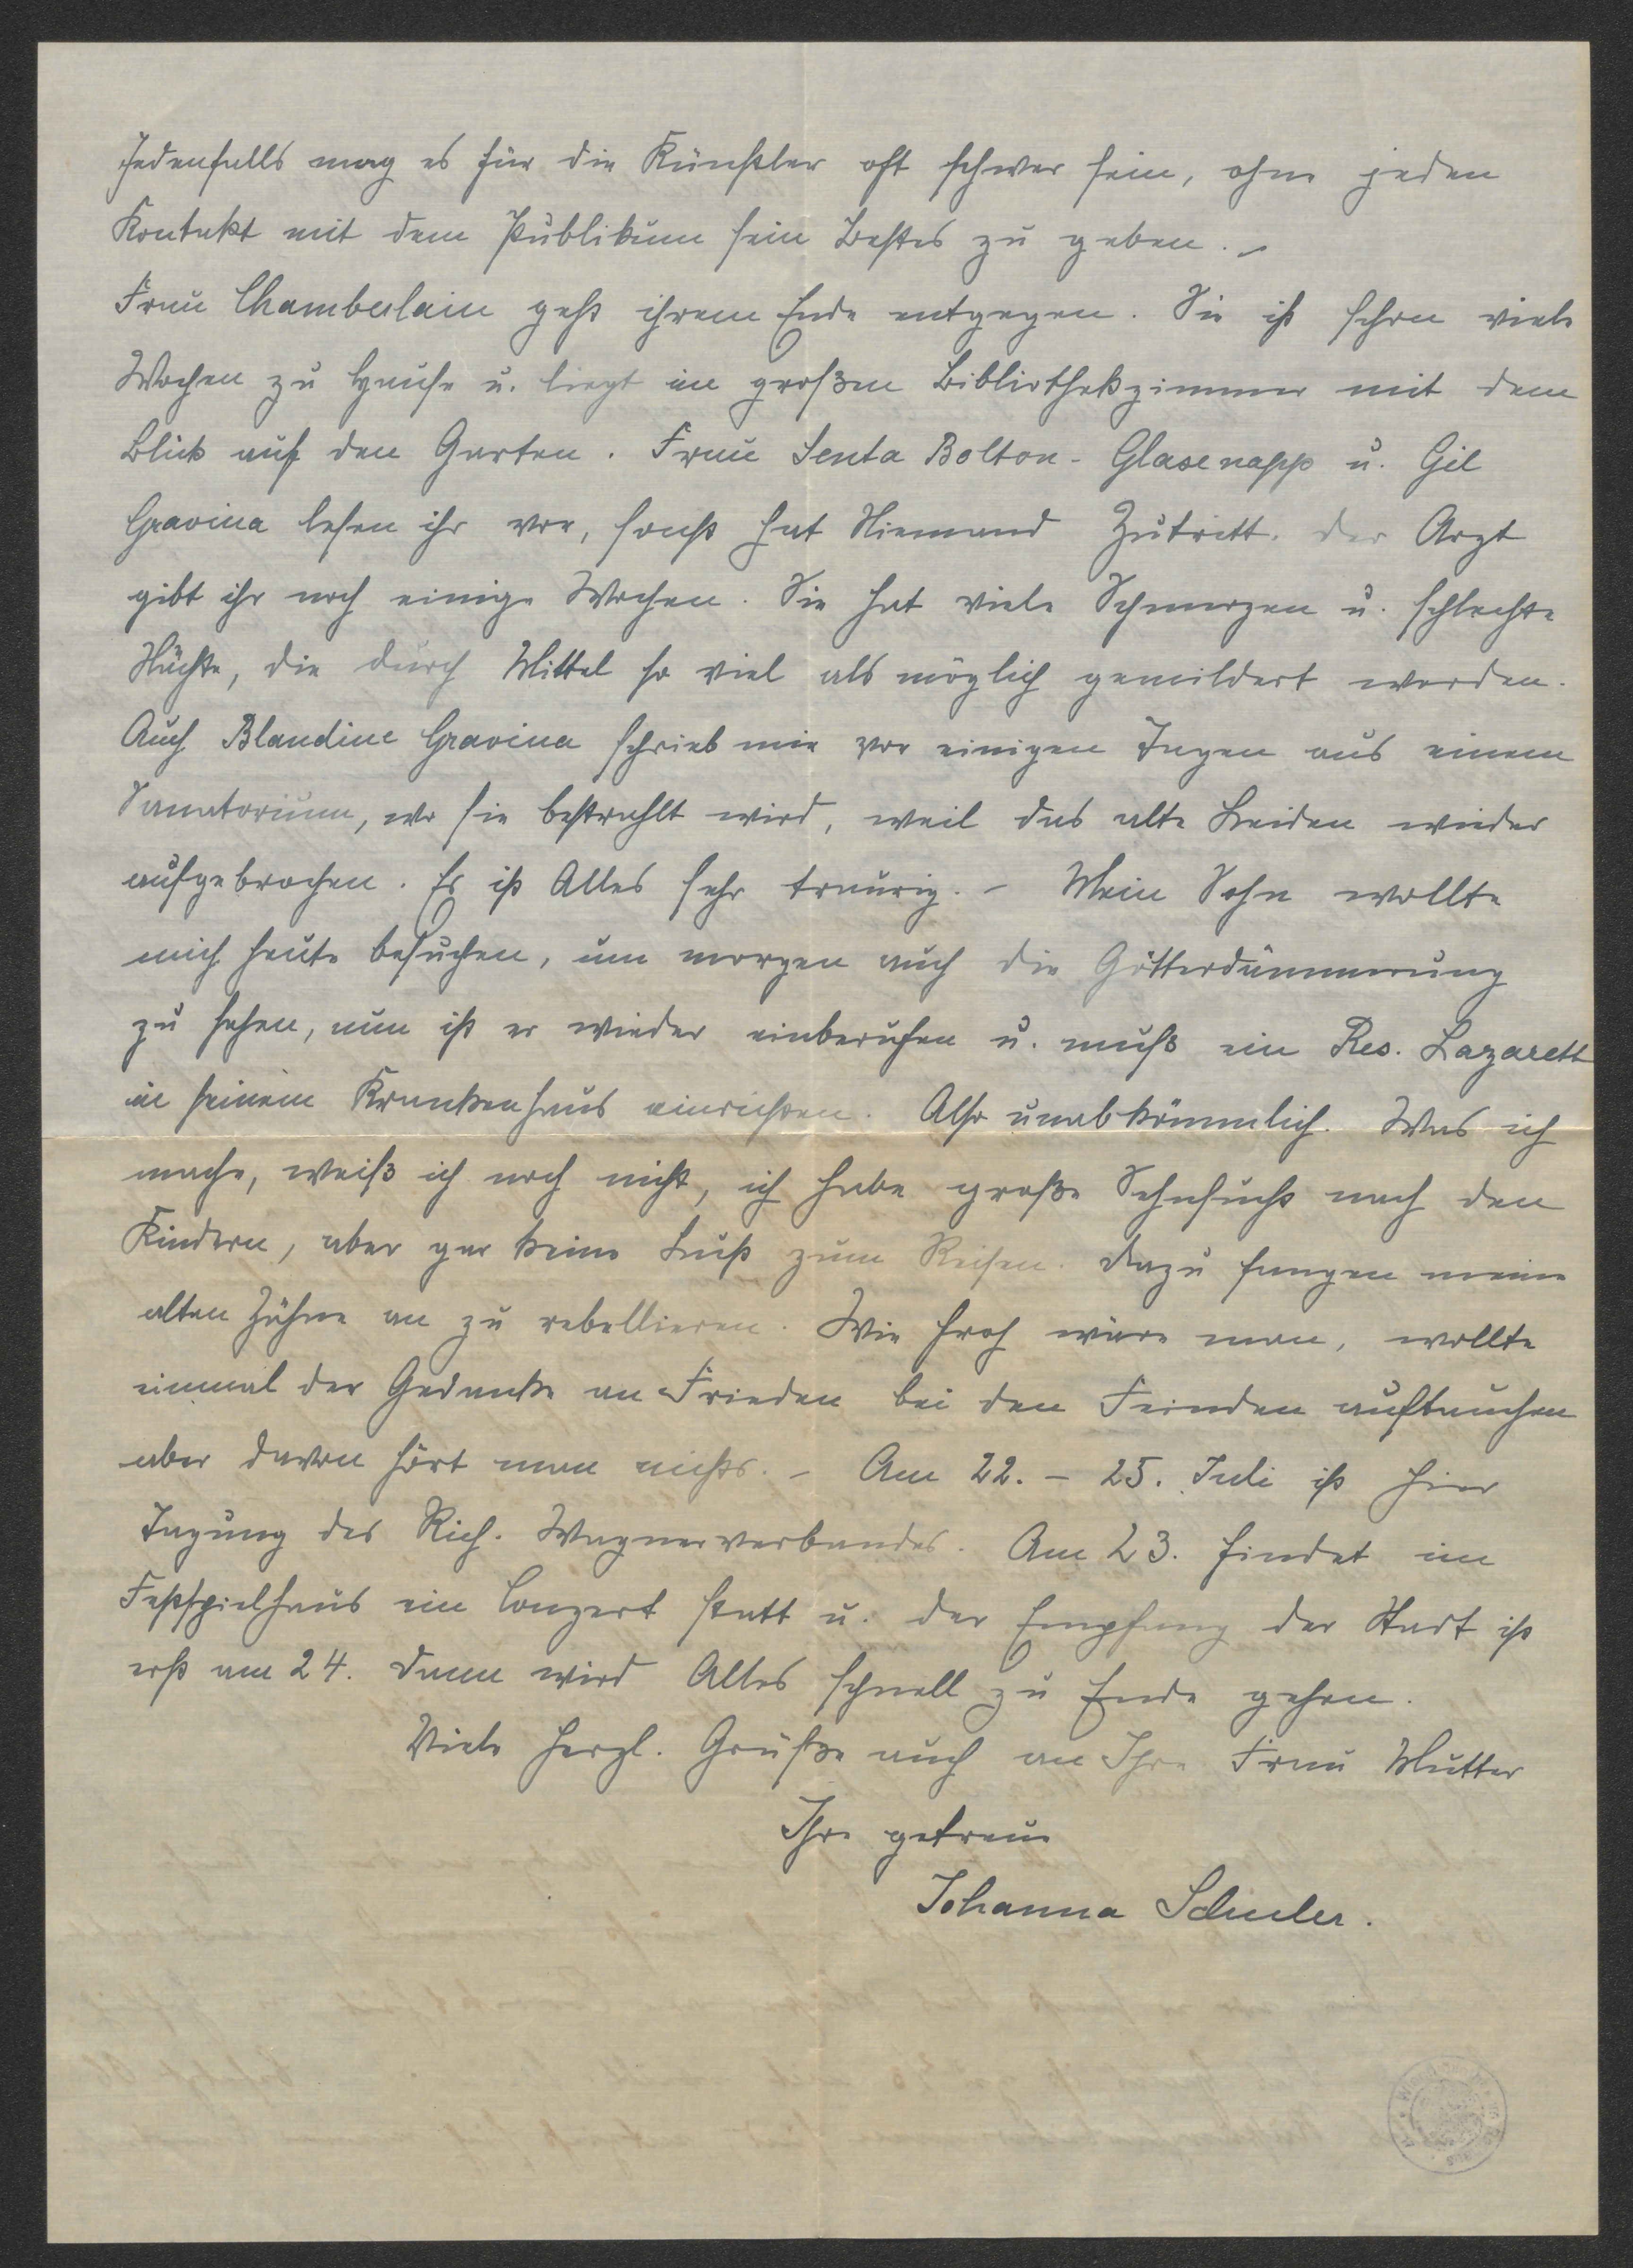 Jedenfalls mag es für die Künstler oft schwer sein, ohne jeden
Kontakt mit dem Publikum sein Bestes zu geben. –
Frau Chamberlain geht ihrem Ende entgegen. Sie ist schon viele
Wochen zu Hause u. liegt im großen Bibliothekzimmer mit dem
Blick auf den Garten. Frau Senta Bolton-Glasenapp u. Gil
Gravina lesen ihr vor, sonst hat Niemand Zutritt. Der Arzt
gibt ihr noch einige Wochen. Sie hat viele Schmerzen u. schlechte
Nächte, die durch Mittel so viel als möglich gemildert werden.
Auch Blandine Gravina schrieb mir vor einigen Tagen aus einem
Sanatorium, wo sie bestrahlt wird, weil das alte Leiden wieder
aufgebrochen. Es ist Alles sehr traurig. – Mein Sohn wollte
mich heute besuchen, um morgen auch die Götterdämmerung
zu sehen, nun ist er wieder einberufen u. muß ein Res. Lazarett
in seinem Krankenhaus einrichten. Also unabkömmlich. Was ich
mache, weiß ich noch nicht, ich habe große Sehnsucht nach den
Kindern, aber gar keine Lust zum Reisen. Dazu fangen meine
alten Zähne an zu rebellieren. Wie froh wäre man, wollte
einmal der Gedanke an Frieden bei den Feinden auftauchen
aber davon hört man nichts. – Am 22. – 25. Juli ist hier
Tagung des Rich. Wagnerverbandes. Am 23. findet im
Festspielhaus ein Conzert statt u. der Empfang der Stadt ist
erst am 24. Dann wird Alles schnell zu Ende gehen.
Viele herzl. Grüße auch an Ihre Frau Mutter
Ihre getreue
Johanna Schuler.